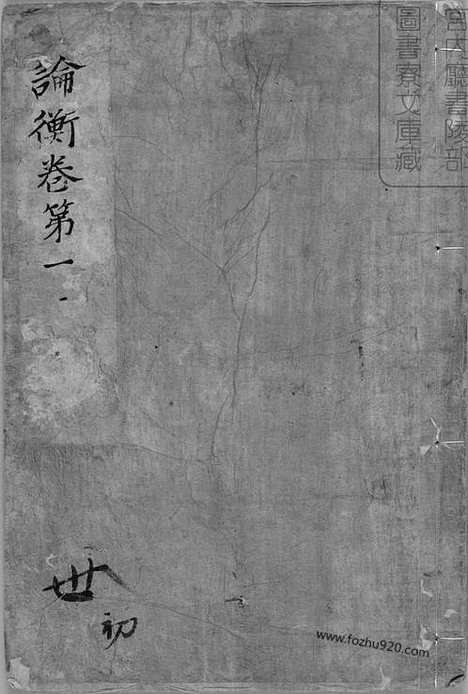 宮內廳書陵部
圖書寮文庫藏
論衡卷第一
丗
初
www.fozhu920.com